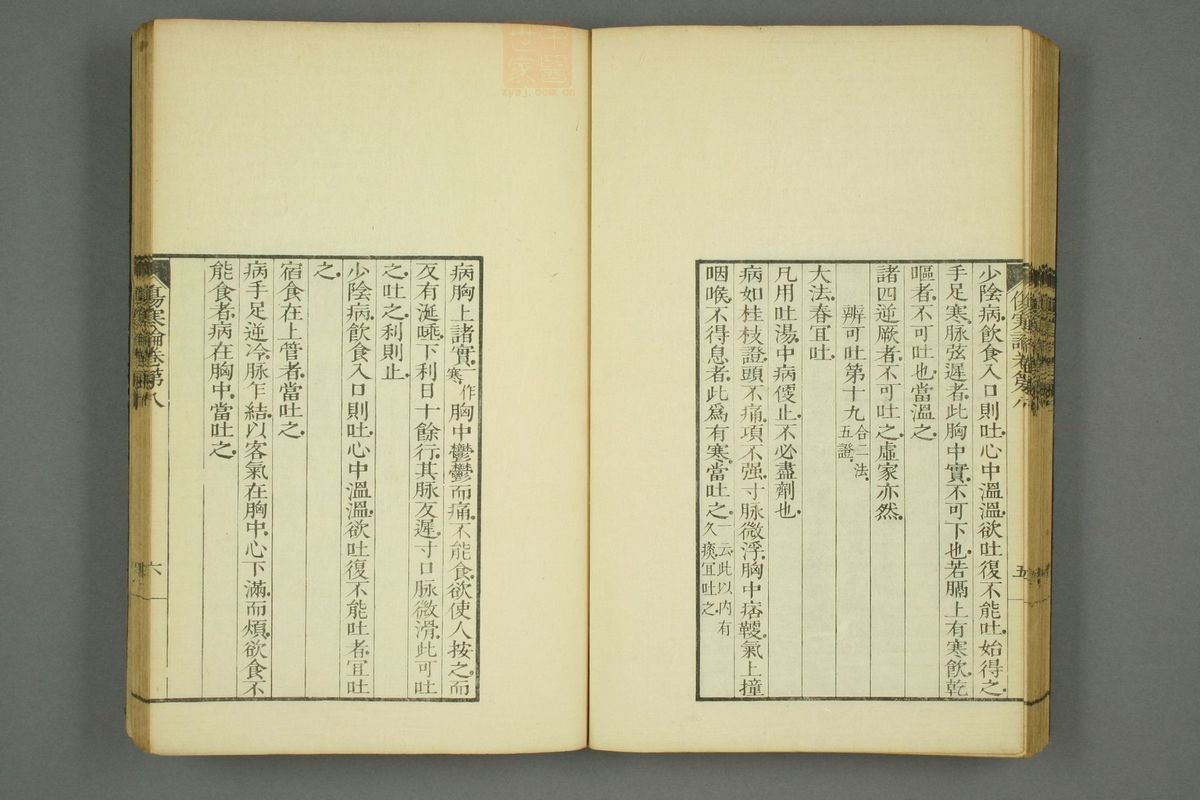 少陰病飲食入口則吐心中溫溫欲吐復不能吐始得之
手足寒脉弦遲者此胸中實不可下也若膈上有寒飲乾
嘔者不可吐也當溫之
諸四逆厥者不可吐之虛家亦然
辨可吐第十九合二法五證
大法春宜吐
凡用吐湯中病便止不必盡劑也
病如桂枝證頭不痛項不强寸脉微浮胸中痞鞕氣上撞
咽喉不得息者此爲有寒當吐之一云此以内有久痰宜吐之
病胸上諸實一作寒胸中鬱鬱而痛不能食欲使人按之而
反有涎唾下利日十餘行其脉反遲寸口脉微滑此可吐
之吐之利則止
少陰病飲食入口則吐心中溫溫欲吐復不能吐者宜吐
之
宿食在上管者當吐之
病手足逆冷脉乍結以客氣在胸中心下滿而煩欲食不
能食者病在胸中當吐之
傷寒論卷第八
六
五
zysj.com.cn